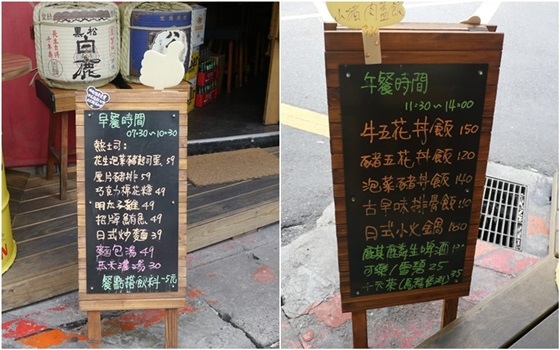 黑松
白鹿
早餐時間
07:30~10:30
熱土司：
花生泡菜豬起司蛋 59
厚片豬排 59
巧克力棉花糖 49
明太子雞 49
招牌鮪魚 49
日式炒麵 39
麵包湯 49
玉米濃湯 30
餐點搭飲料-5元
午餐時間
11:30~14:00
牛五花丼飯 150
豬五花丼飯 120
泡菜豬丼飯 140
古早味排骨飯
日式小火鍋 160
麒麟生啤酒
可樂/雪碧 25